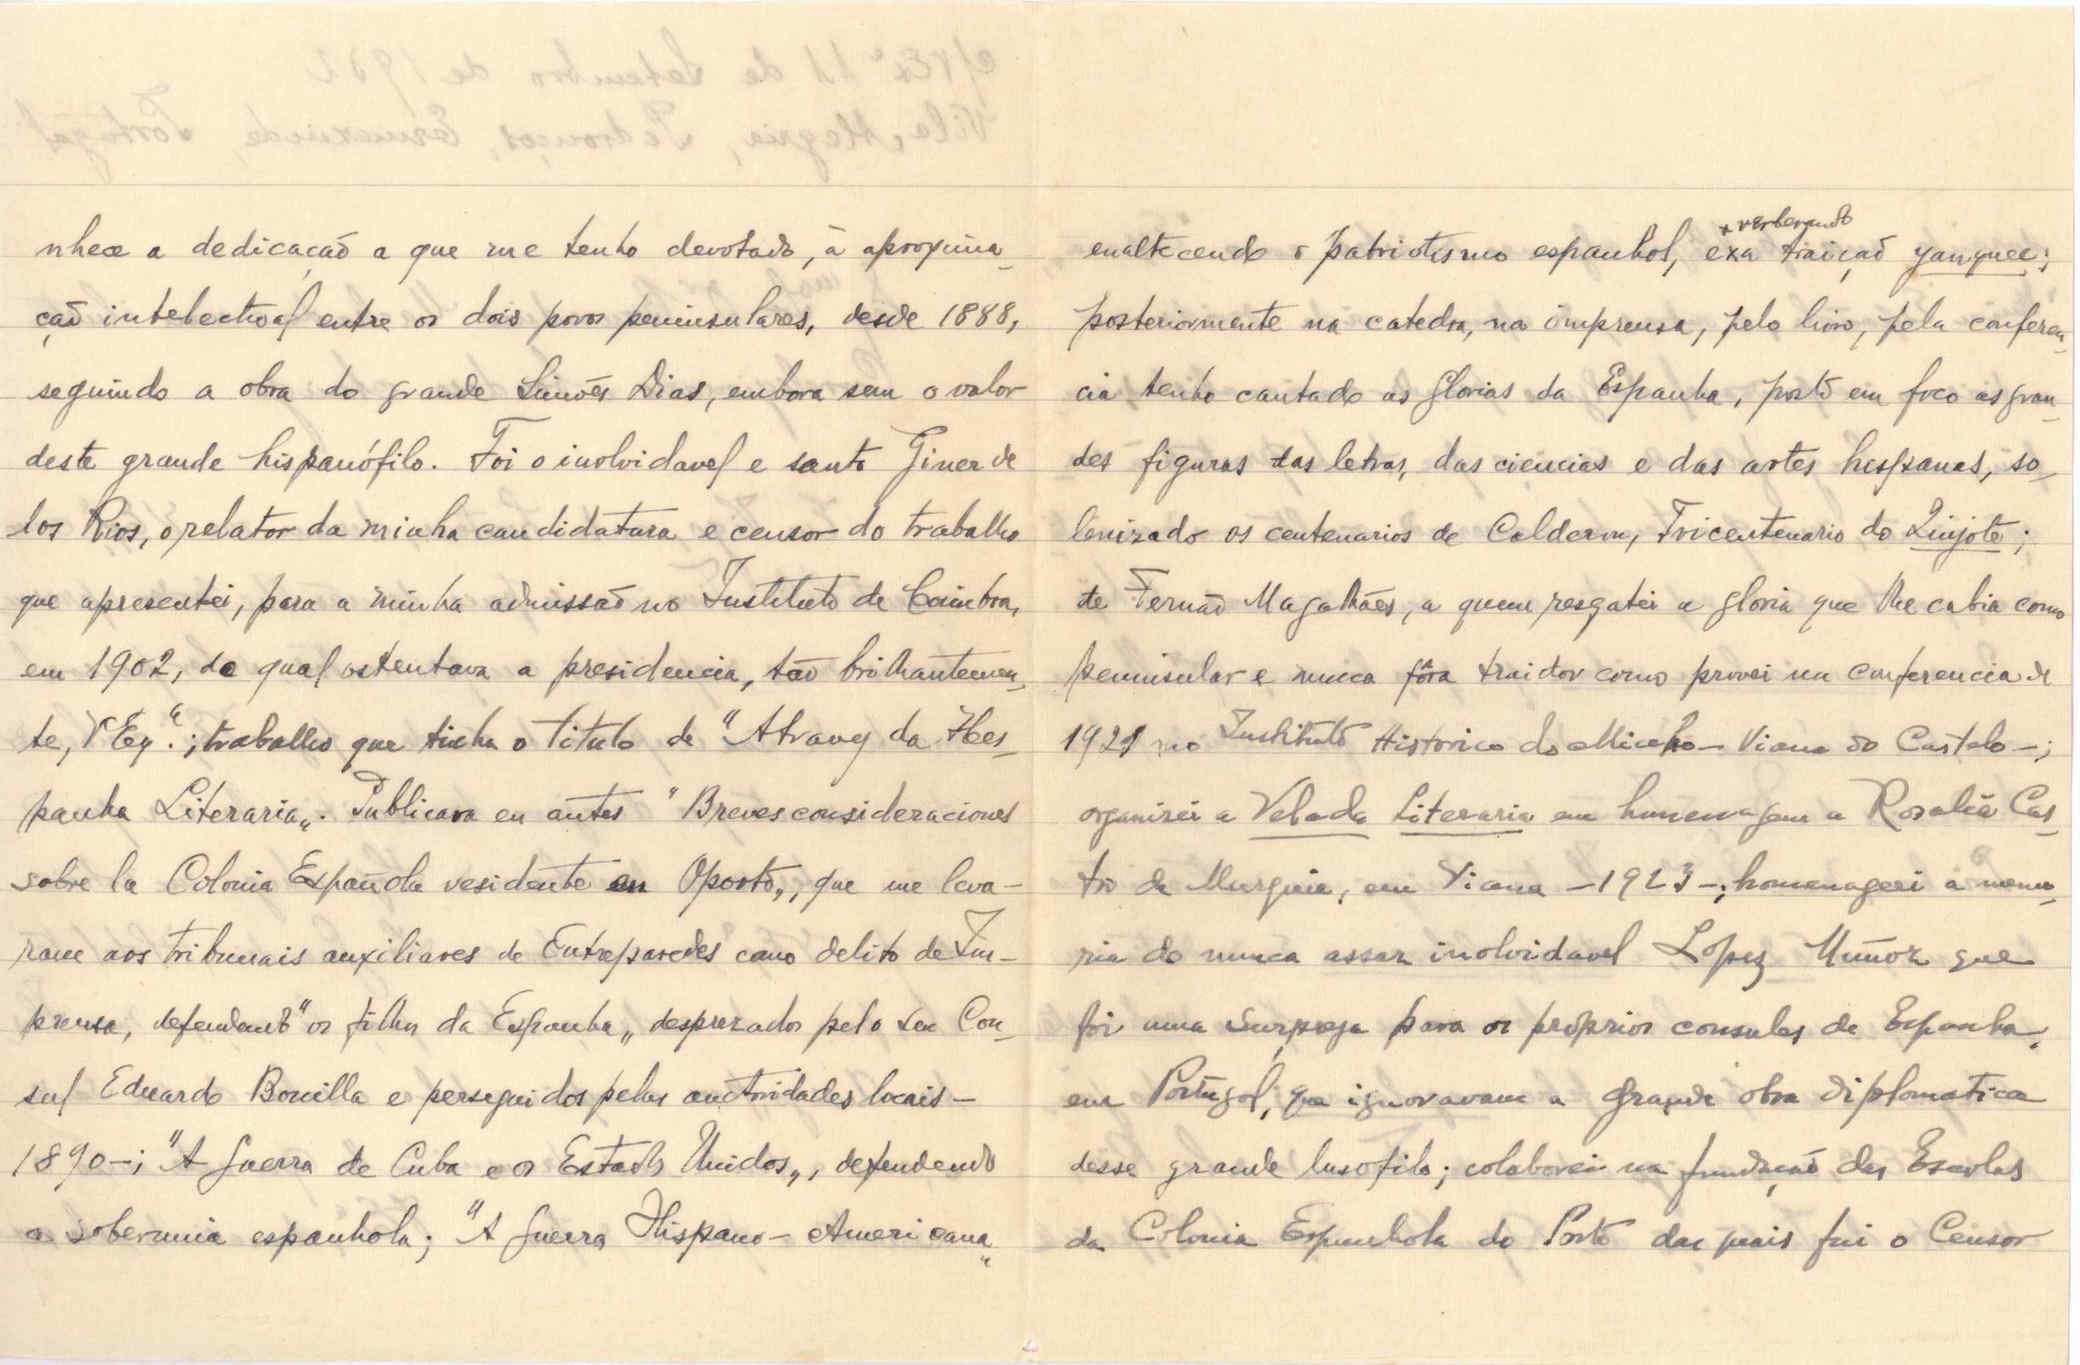 nhece a dedicação a que me tenho devotado, à aproxima-
ção intelectoal entre os dois povos peninsulares, desde 1888,
seguindo a obra do grande Simões Dias, embora sem o valor
deste grande hispanófilo. Foi o inolvidavel e santo Giner de
los Rios, o relator da minha candidatura e censor do trabalho
que apresentei, para a minha admissão no Instituto de Coimbra,
em 1902, do qual ostentava a presidencia, tão brilhantemen-
te, V Exª.; trabalho que tinha o titulo de "Atravez da Hes-
panha Literaria". Publicara eu antes "Breves consideraciones
sobre la Colonia Española residente en Oporto", que me leva-
ram aos tribunais auxiliares de Entreparedes como delito de Im-
prensa, defendendo "os filhos da Espanha" desprezados pelo seu Con-
sul Eduardo Bonilla e perseguidos pelas auctoridades locais -
1890-; "A Guerra de Cuba e os Estados Unidos", defendendo
a soberania espanhola; "A Guerra Hispano-Americana"
enaltecendo o patriotismo espanhol, verberando a traição yanquee;
posteriormente na catedra, na imprensa, pelo livro, pela conferen-
cia tenho cantado as glorias da Espanha, posto em foco as gran-
des figuras das letras, das ciencias e das artes hespanas, so-
lenizado os centenarios de Calderon, Tricentenario do Quijote;
de Fernão Magalhães, a quem resgatei a gloria que lhe cabia como
peninsular e nunca fôra traidor como provei na conferencia de
1921 no Instituto Historico do Minho - Viana do Castelo -;
organizei a Velada Literaria em homenagem a Rosalia Cas-
tro de Murguia, em Viana - 1923 -; homenageei a memo-
ria do nunca assaz inolvidavel Lopez Muñoz que
foi uma surpreza para os próprios consules de Espanha,
em Portugal, que ignoravam a grande obra diplomatica
desse grande lusofilo; colaborei na fundação das Escolas
da Colonia Espanhola do Porto das quais fui o Censor